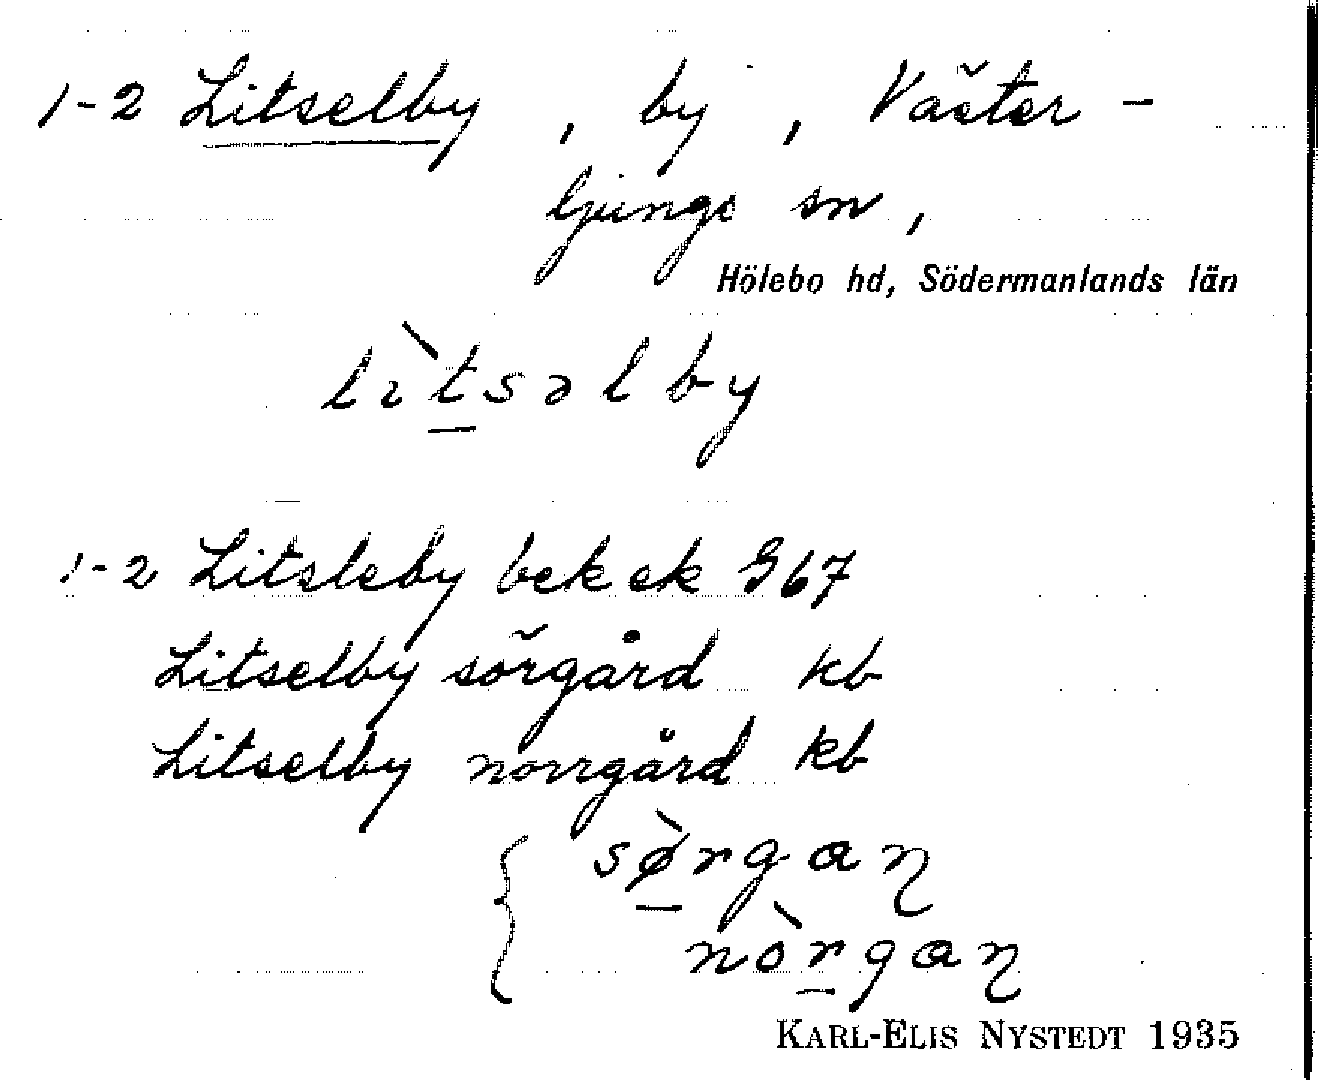 1-2 Litselby, by, Väster-
ljungs sn,
Hölebo hd, Södermanlands län
lɩ̀tsəlby
1-2 Litsleby bek ek G 67
Litselby sörgård kb
Litselby norrgård kb
{ sø̀rgaɳ
nòrgaɳ
KARL-ELIS NYSTEDT 1935